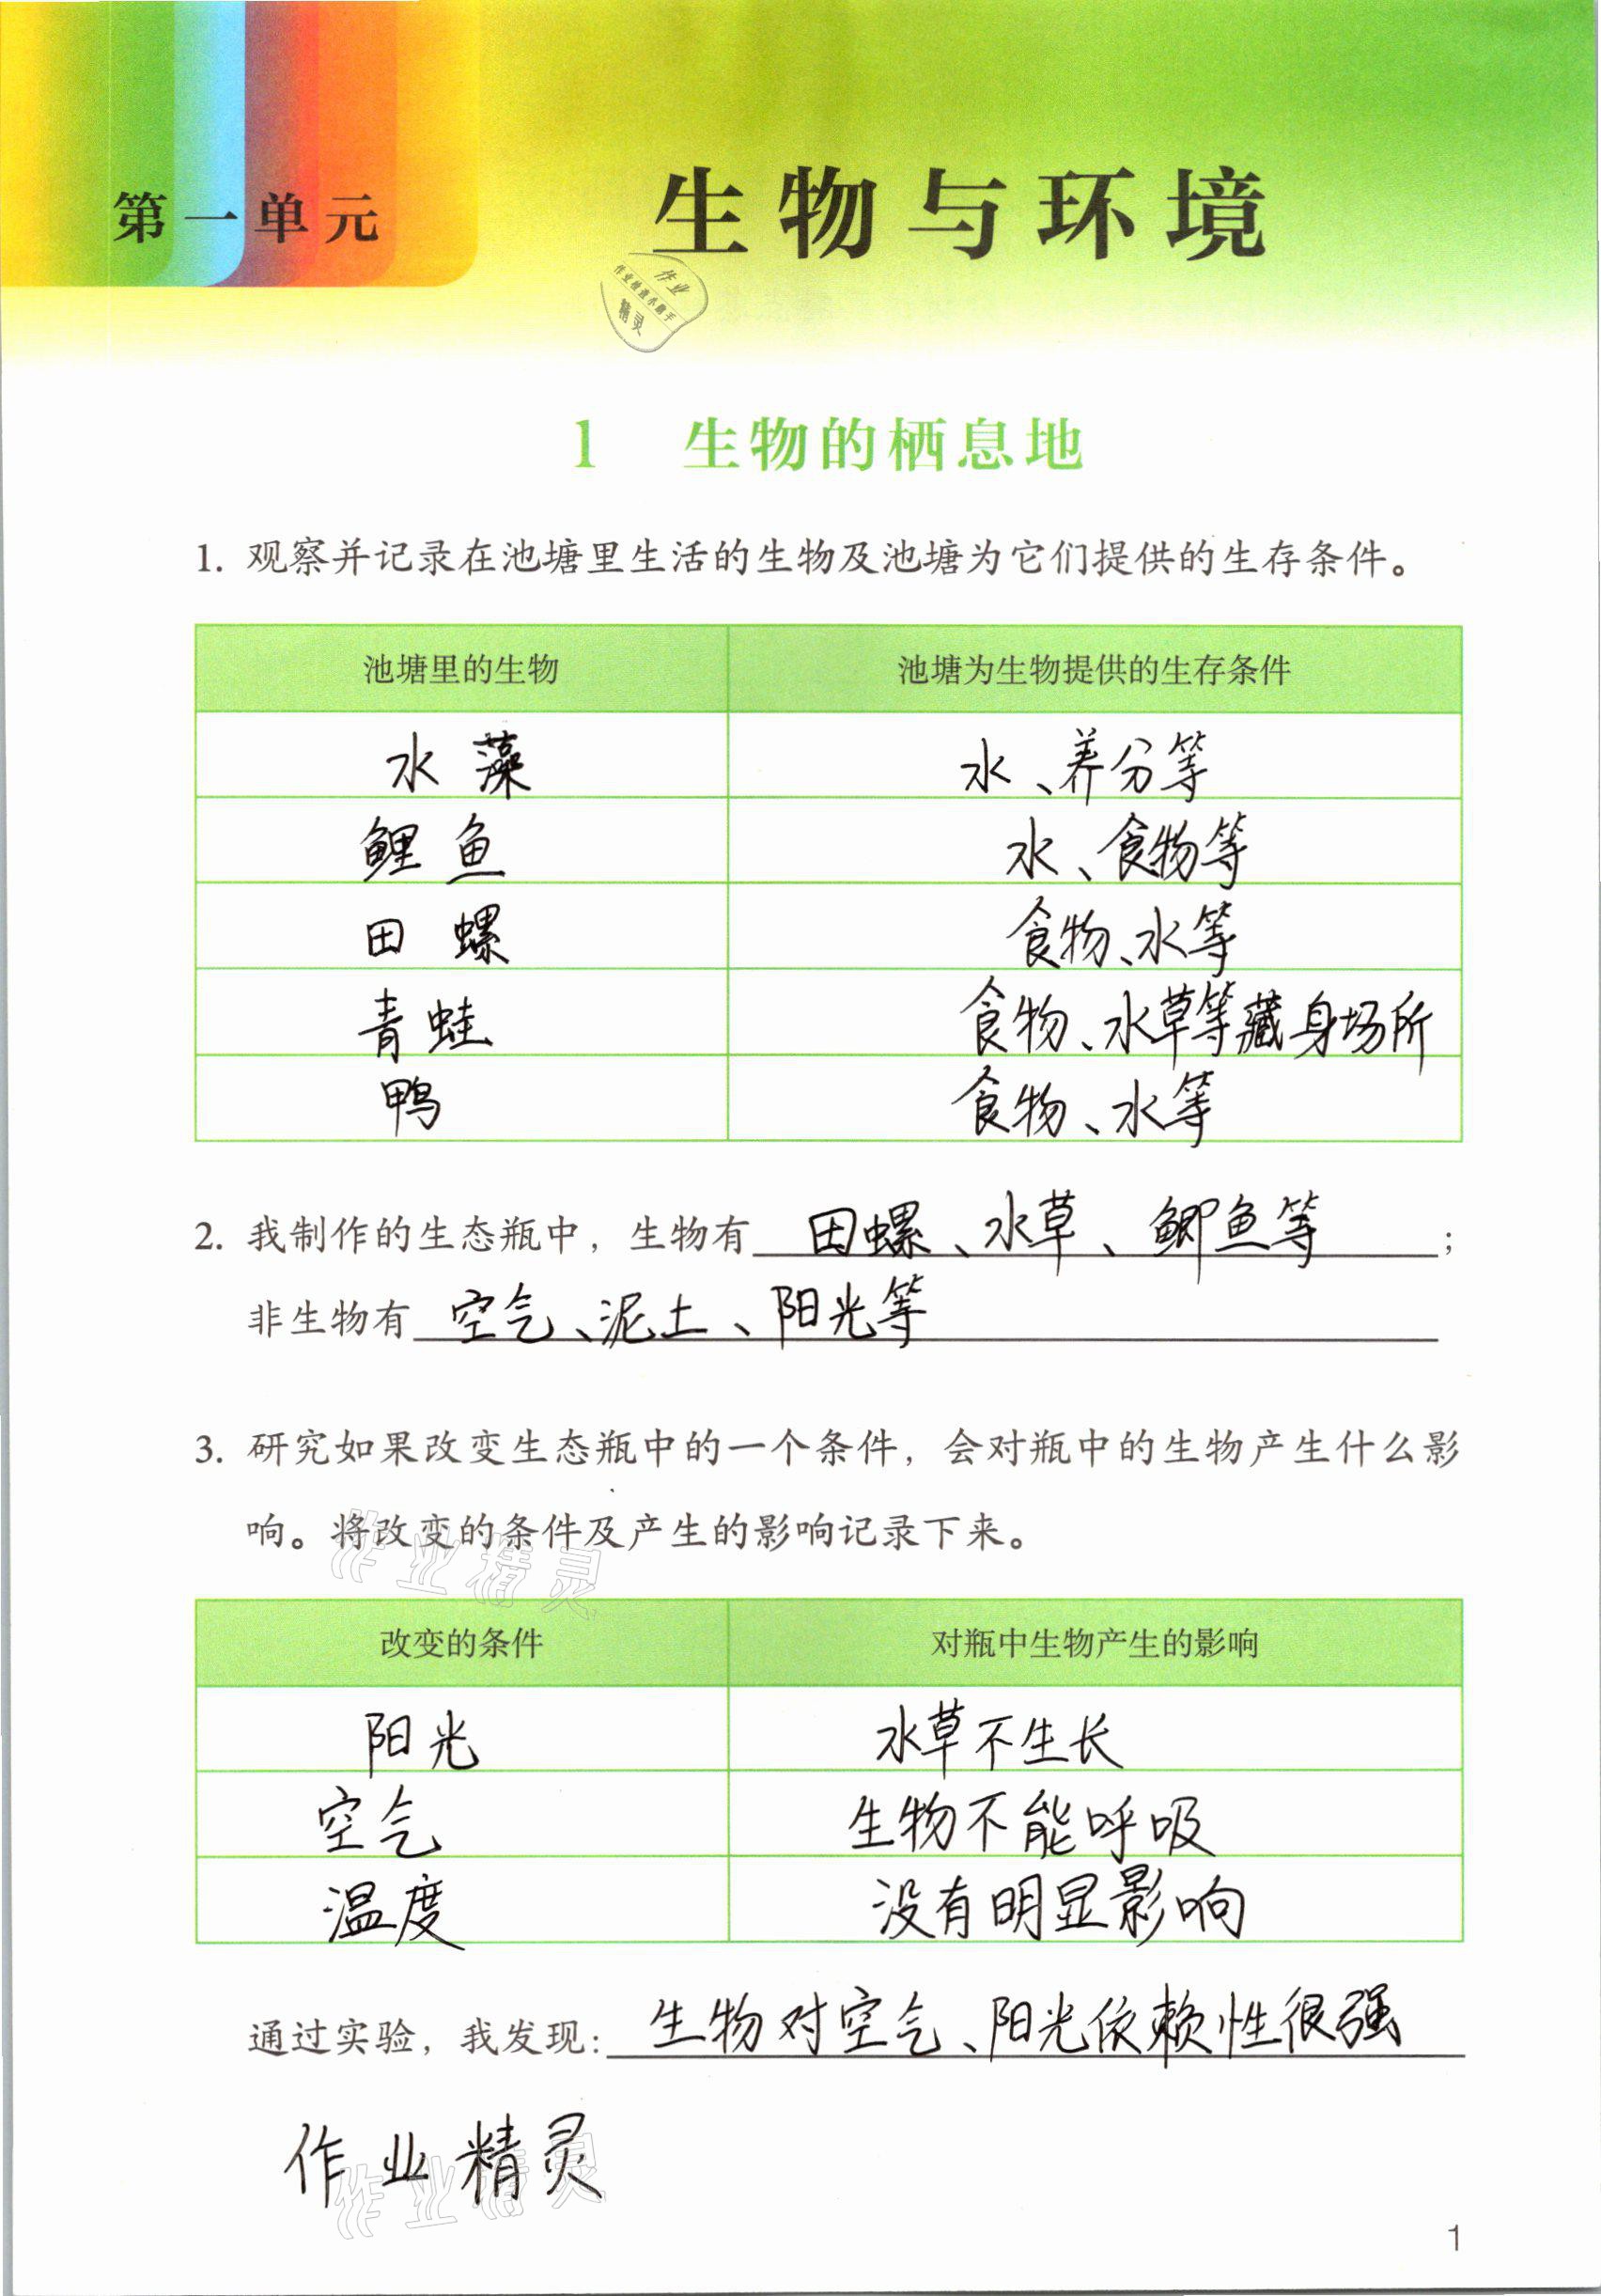 第一单元 生物与环境
作业
作业检查小助手
精灵
1 生物的栖息地
1. 观察并记录在池塘里生活的生物及池塘为它们提供的生存条件。
池塘里的生物 池塘为生物提供的生存条件
水藻 水、养分等
鲤鱼 水、食物等
田螺 食物、水等
青蛙 食物、水草等藏身场所
鸭 食物、水等
2. 我制作的生态瓶中，生物有 田螺、水草、鲫鱼等 ；
非生物有 空气、泥土、阳光等
3. 研究如果改变生态瓶中的一个条件，会对瓶中的生物产生什么影
响。将改变的条件及产生的影响记录下来。
作业精灵
改变的条件 对瓶中生物产生的影响
阳光 水草不生长
空气 生物不能呼吸
温度 没有明显影响
通过实验，我发现： 生物对空气、阳光依赖性很强
作业精灵
作业精灵
1